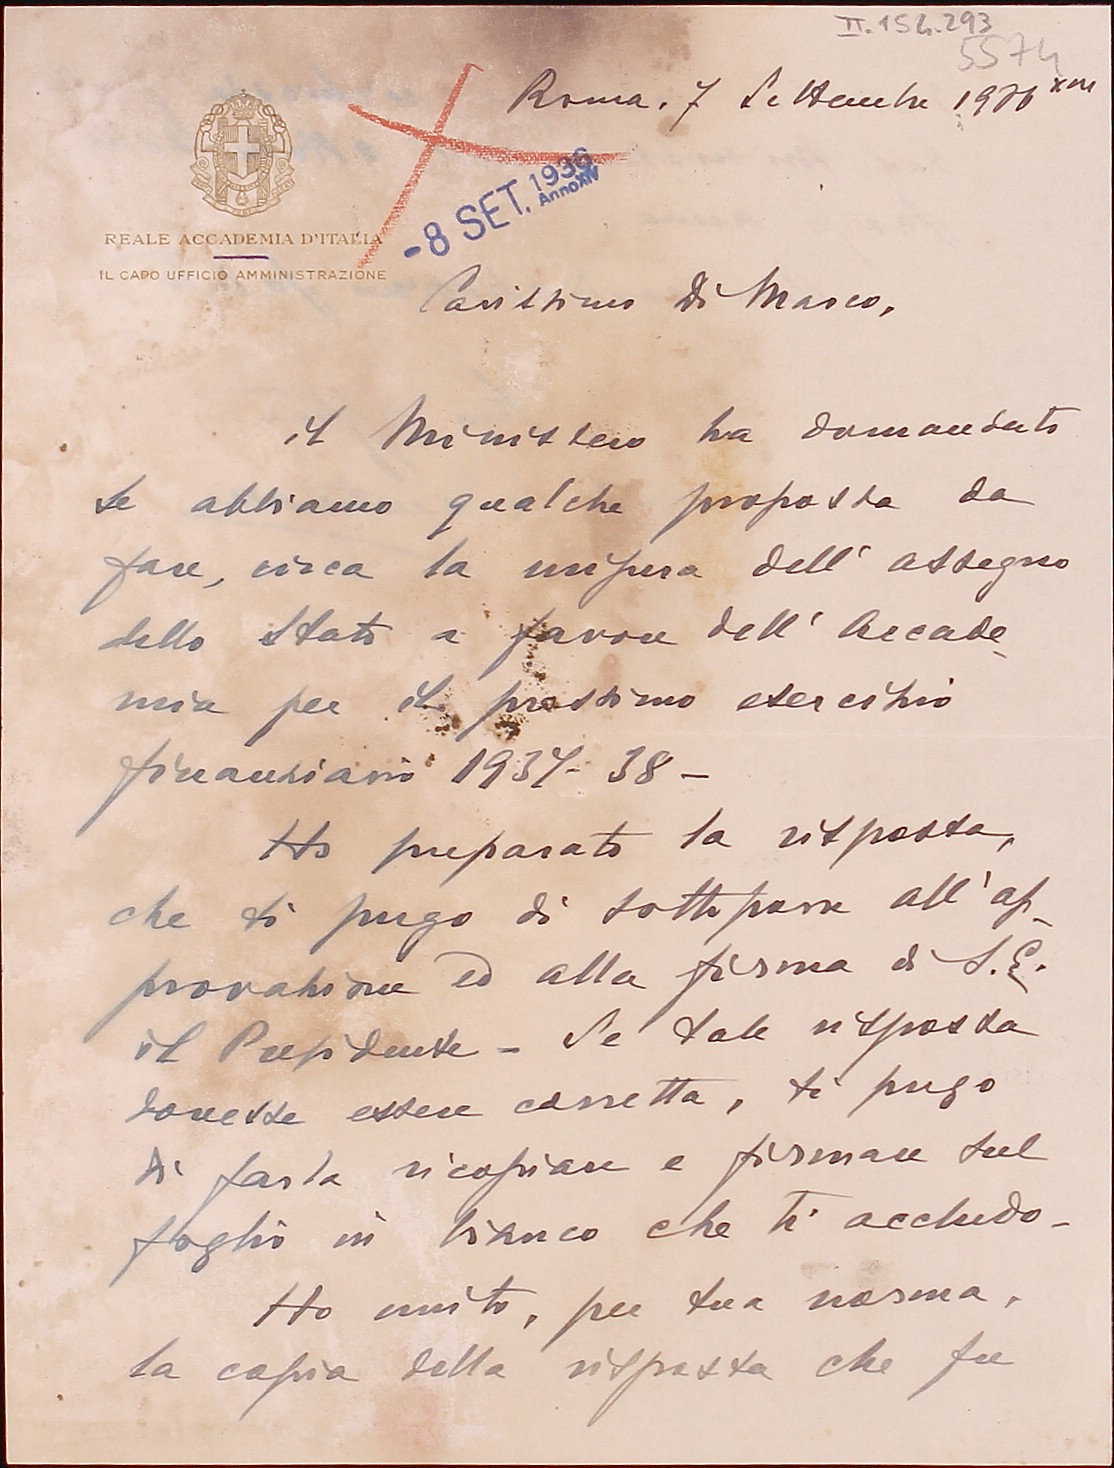 II.154.293
5574
Roma. 7 Settembre 1936 XIV
-8 SET. 1936
Anno XIV
REALE ACCADEMIA D'ITALIA
IL CAPO UFFICIO AMMINISTRAZIONE
Carissimo Di Marco,
il Ministero ha domandato
se abbiamo qualche proposta da
fare, circa la misura dell'assegno
dello Stato a favore dell'Accade-
mia per il prossimo esercizio
finanziario 1937-38 -
Ho preparato la risposta,
che ti prego di sottoporre all'ap-
provazione ed alla firma di S.E.
il Presidente - Se tale risposta
dovesse essere corretta, ti prego
di farla ricopiare e firmare sul
foglio in bianco che ti accludo -
Ho unito, per tua norma,
la copia della risposta che fu